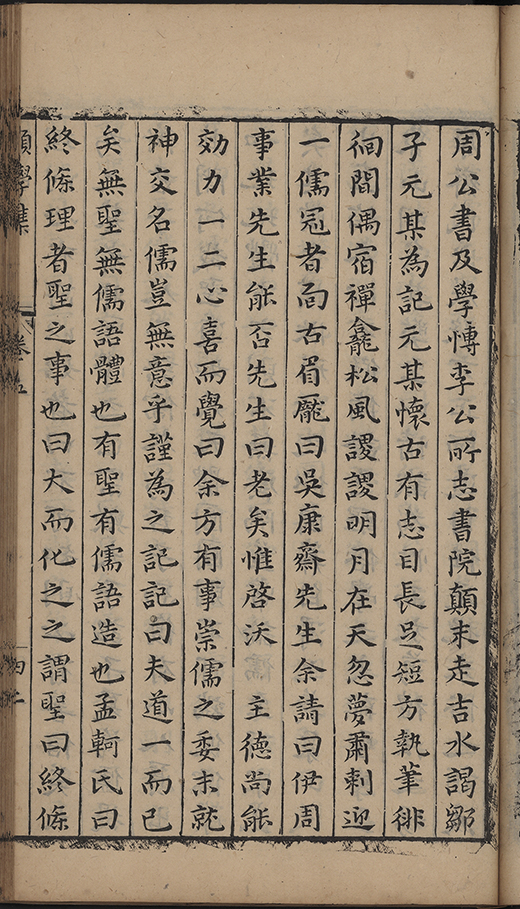 周公書及學博李公所志書院顛末走吉水謁鄒
子元某為記元某懷古有志目長足短方執筆徘
徊間偶宿禪龕松風謖謖明月在天忽夢肅刺迎
一儒冠者面古眉厖曰吳康齋先生余請曰伊周
事業先生能否先生曰老矣惟啓沃　主德尚能
効力一二心喜而覺曰余方有事崇儒之委未就
神交名儒豈無意乎謹為之記記曰夫道一而已
矣無聖無儒語體也有聖有儒語造也孟軻氏曰
終條理者聖之事也曰大而化之之謂聖曰終條
願學集　卷五　四十